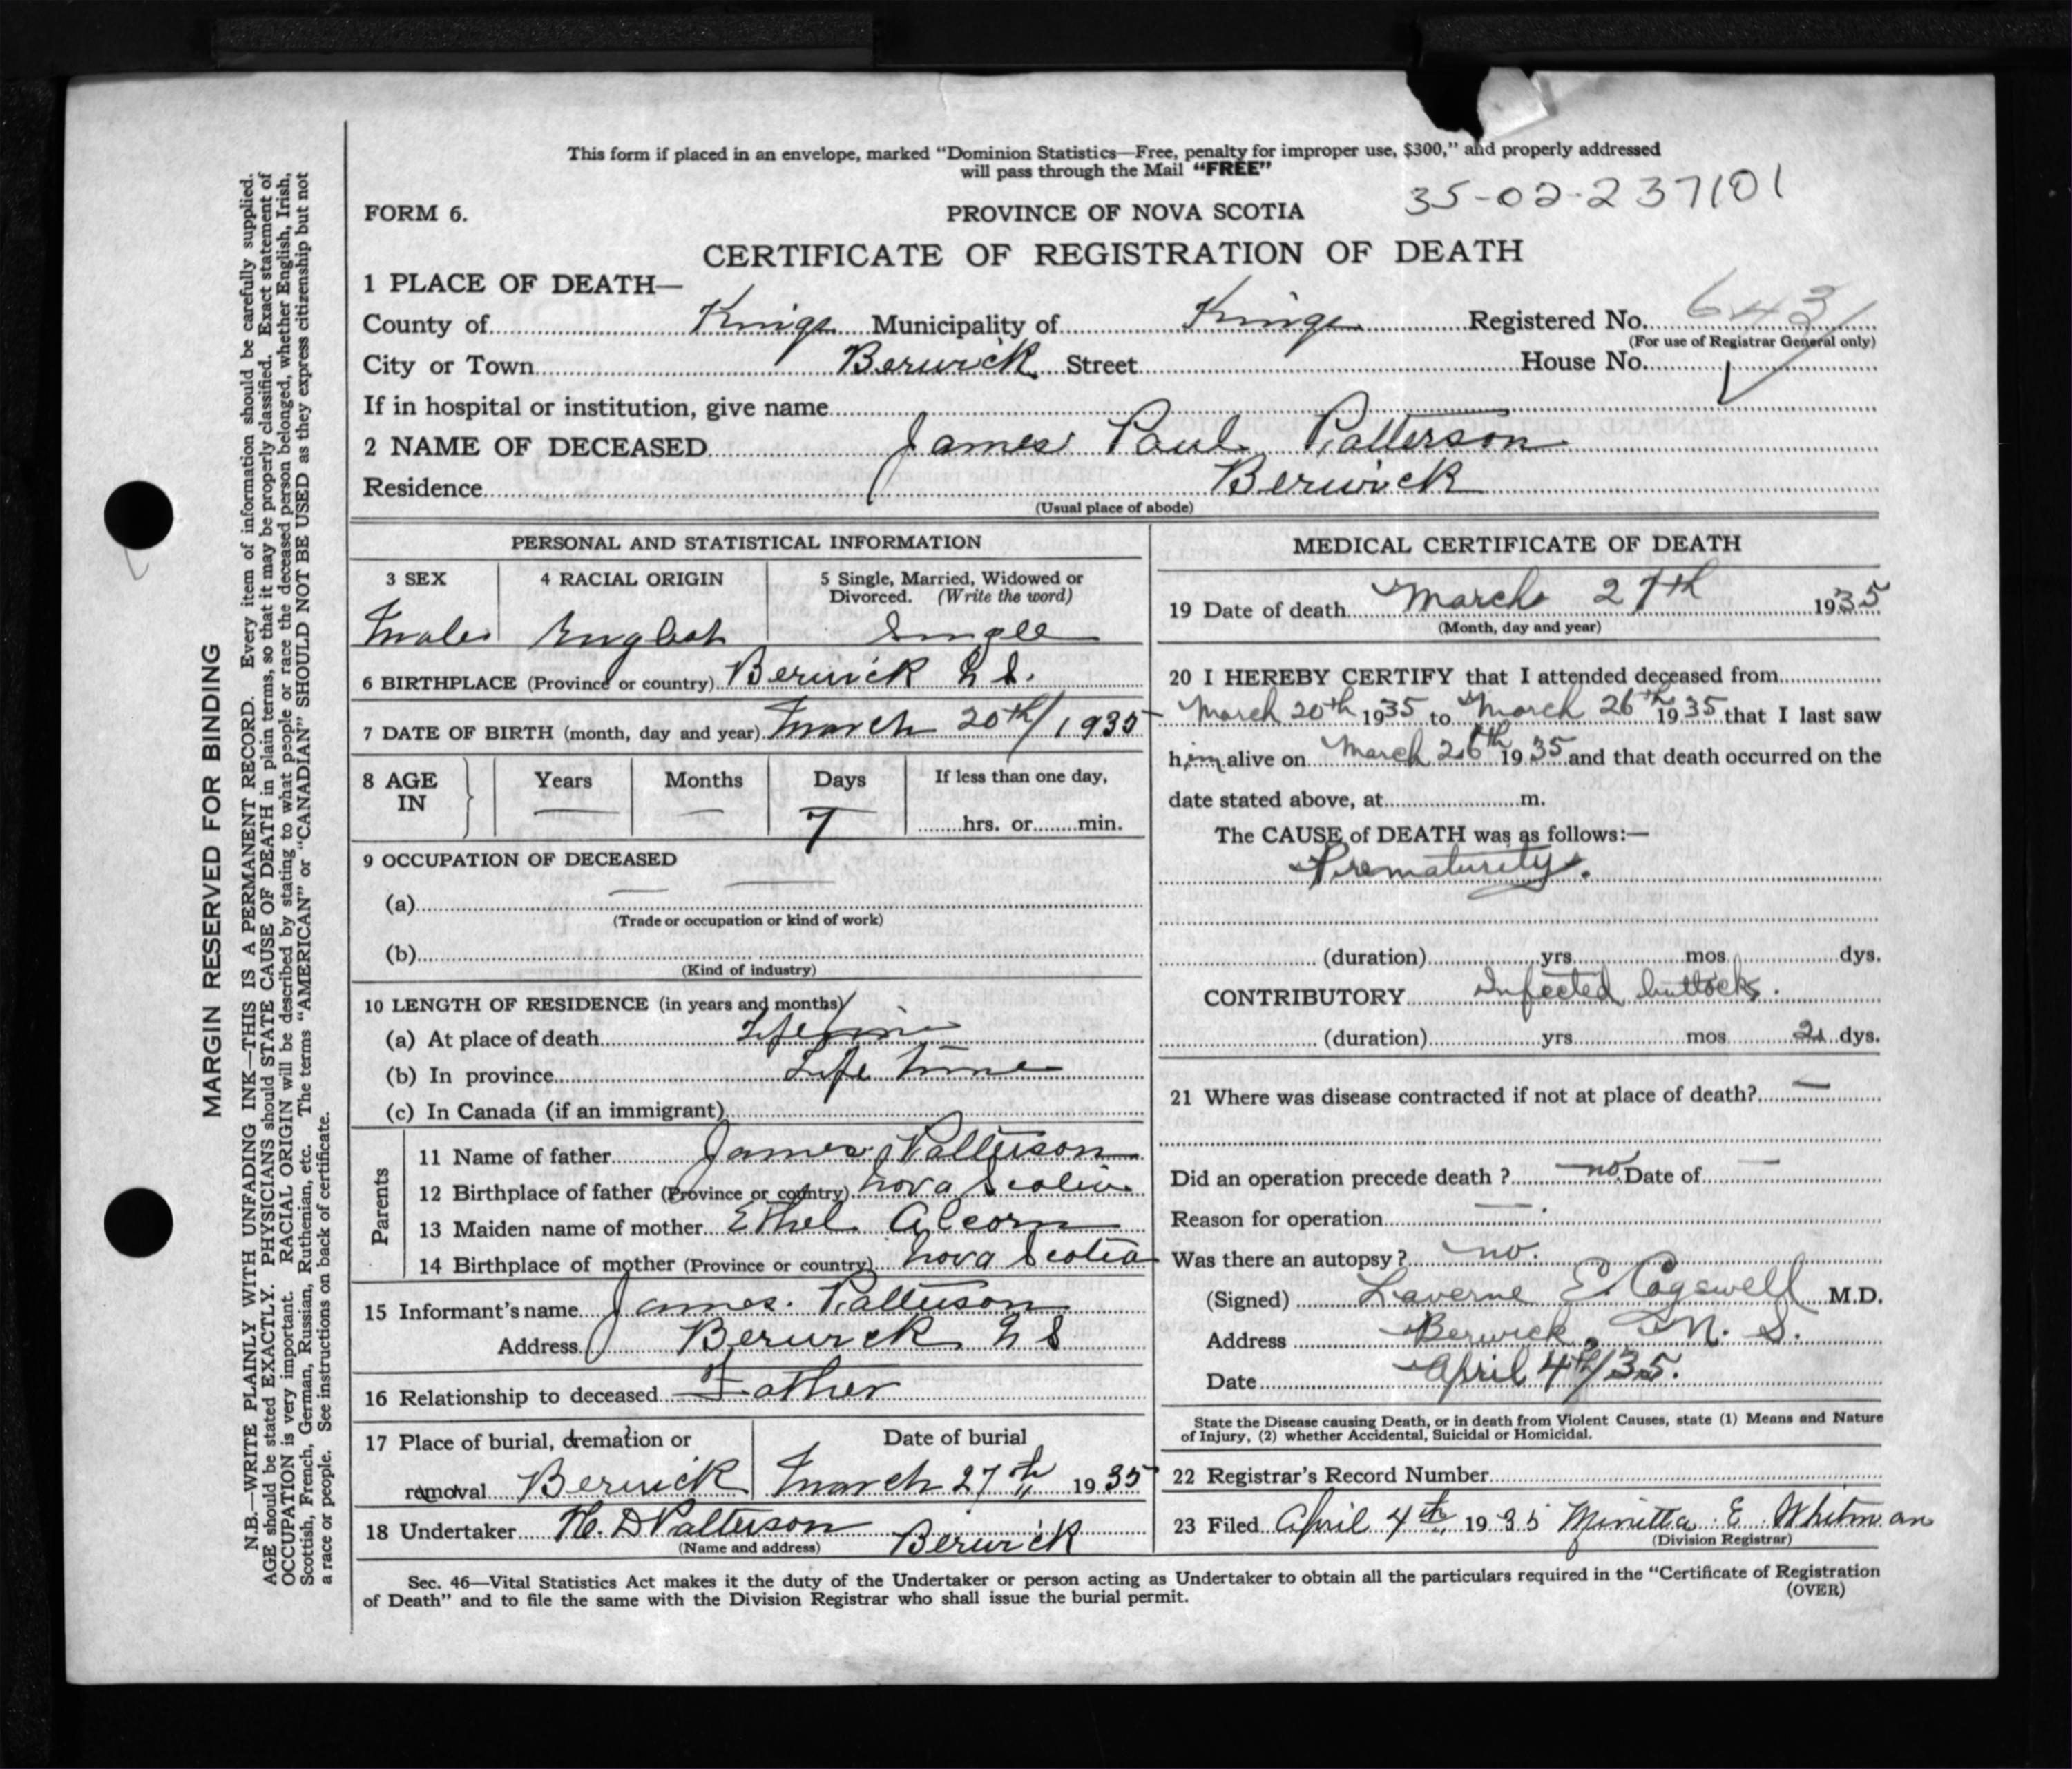 This form if placed in an envelope, marked “Dominion Statistics—Free, penalty for improper use, $300,” and properly addressed
will pass through the Mail “FREE”
35-02-237101
FORM 6. PROVINCE OF NOVA SCOTIA
CERTIFICATE OF REGISTRATION OF DEATH
1 PLACE OF DEATH—
County of Kings Municipality of Kings Registered No. 643
(For use of Registrar General only)
City or Town Berwick Street House No.
If in hospital or institution, give name
2 NAME OF DECEASED James Paul Patterson
Residence Berwick
(Usual place of abode)
PERSONAL AND STATISTICAL INFORMATION
3 SEX 4 RACIAL ORIGIN 5 Single, Married, Widowed or
Divorced. (Write the word)
Male English Single
6 BIRTHPLACE (Province or country) Berwick N S.
7 DATE OF BIRTH (month, day and year) March 20th/1935
8 AGE IN Years Months Days If less than one day,
— — 7 hrs. or min.
9 OCCUPATION OF DECEASED
(a) — —
(Trade or occupation or kind of work)
(b)
(Kind of industry)
10 LENGTH OF RESIDENCE (in years and months)
(a) At place of death Lifetime
(b) In province Life time
(c) In Canada (if an immigrant)
Parents
11 Name of father James Patterson
12 Birthplace of father (Province or country) Nova Scotia
13 Maiden name of mother Ethel Alcorn
14 Birthplace of mother (Province or country) Nova Scotia
15 Informant's name James Patterson
Address Berwick N S
16 Relationship to deceased Father
17 Place of burial, cremation or Date of burial
removal Berwick March 27th 1935
18 Undertaker H. D Patterson Berwick
(Name and address)
MEDICAL CERTIFICATE OF DEATH
19 Date of death March 27th 1935
(Month, day and year)
20 I HEREBY CERTIFY that I attended deceased from
March 20th 1935 to March 26th 1935 that I last saw
him alive on March 26th 1935 and that death occurred on the
date stated above, at m.
The CAUSE of DEATH was as follows:—
Prematurity.
(duration) yrs mos dys.
CONTRIBUTORY Infected buttocks.
(duration) yrs mos 2 dys.
21 Where was disease contracted if not at place of death? —
Did an operation precede death ? no. Date of —
Reason for operation —
Was there an autopsy ? no.
(Signed) Laverne E. Cogswell M.D.
Address Berwick, N. S.
Date April 4th/35.
State the Disease causing Death, or in death from Violent Causes, state (1) Means and Nature
of Injury, (2) whether Accidental, Suicidal or Homicidal.
22 Registrar's Record Number
23 Filed April 4th 1935 Minetta E. Whitman
(Division Registrar)
Sec. 46—Vital Statistics Act makes it the duty of the Undertaker or person acting as Undertaker to obtain all the particulars required in the “Certificate of Registration
of Death” and to file the same with the Division Registrar who shall issue the burial permit. (OVER)
MARGIN RESERVED FOR BINDING
N.B.—WRITE PLAINLY WITH UNFADING INK—THIS IS A PERMANENT RECORD. Every item of information should be carefully supplied.
AGE should be stated EXACTLY. PHYSICIANS should STATE CAUSE OF DEATH in plain terms, so that it may be properly classified. Exact statement of
OCCUPATION is very important. RACIAL ORIGIN will be described by stating to what people or race the deceased person belonged, whether English, Irish,
Scottish, French, German, Russian, Ruthenian, etc. The terms “AMERICAN” or “CANADIAN” SHOULD NOT BE USED as they express citizenship but not
a race or people. See instructions on back of certificate.